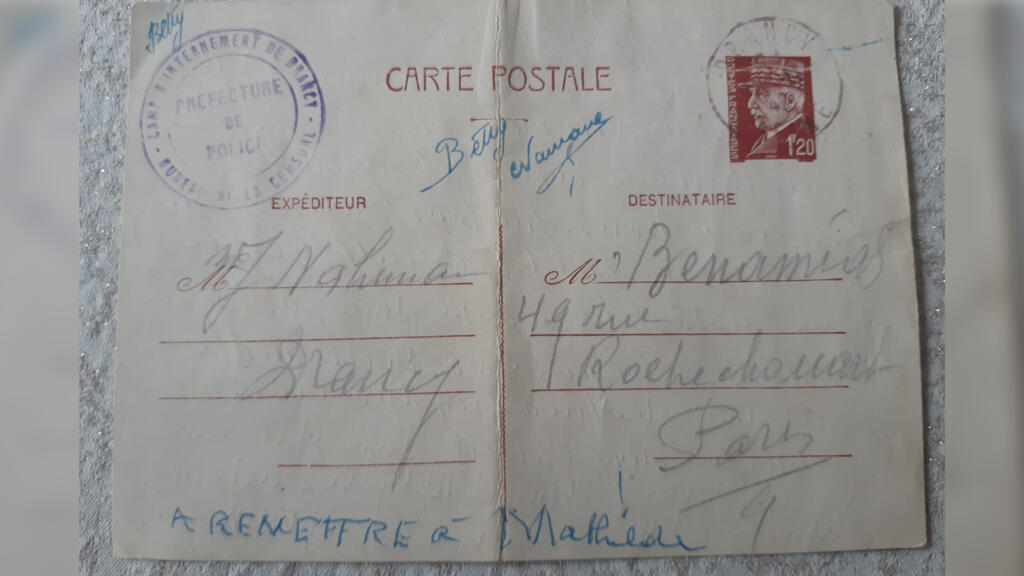 Betty
CAMP D'INTERNEMENT DE DRANCY
PRÉFECTURE
DE
POLICE
BUREAU DE LA CENSURE
CARTE POSTALE
DRANCY
1f20
Betty
EXPÉDITEUR
DESTINATAIRE
M J Nahman
M r Benamias
49 rue
Drancy
Rochechouart
Paris
9
A REMETTRE à Mathilde !